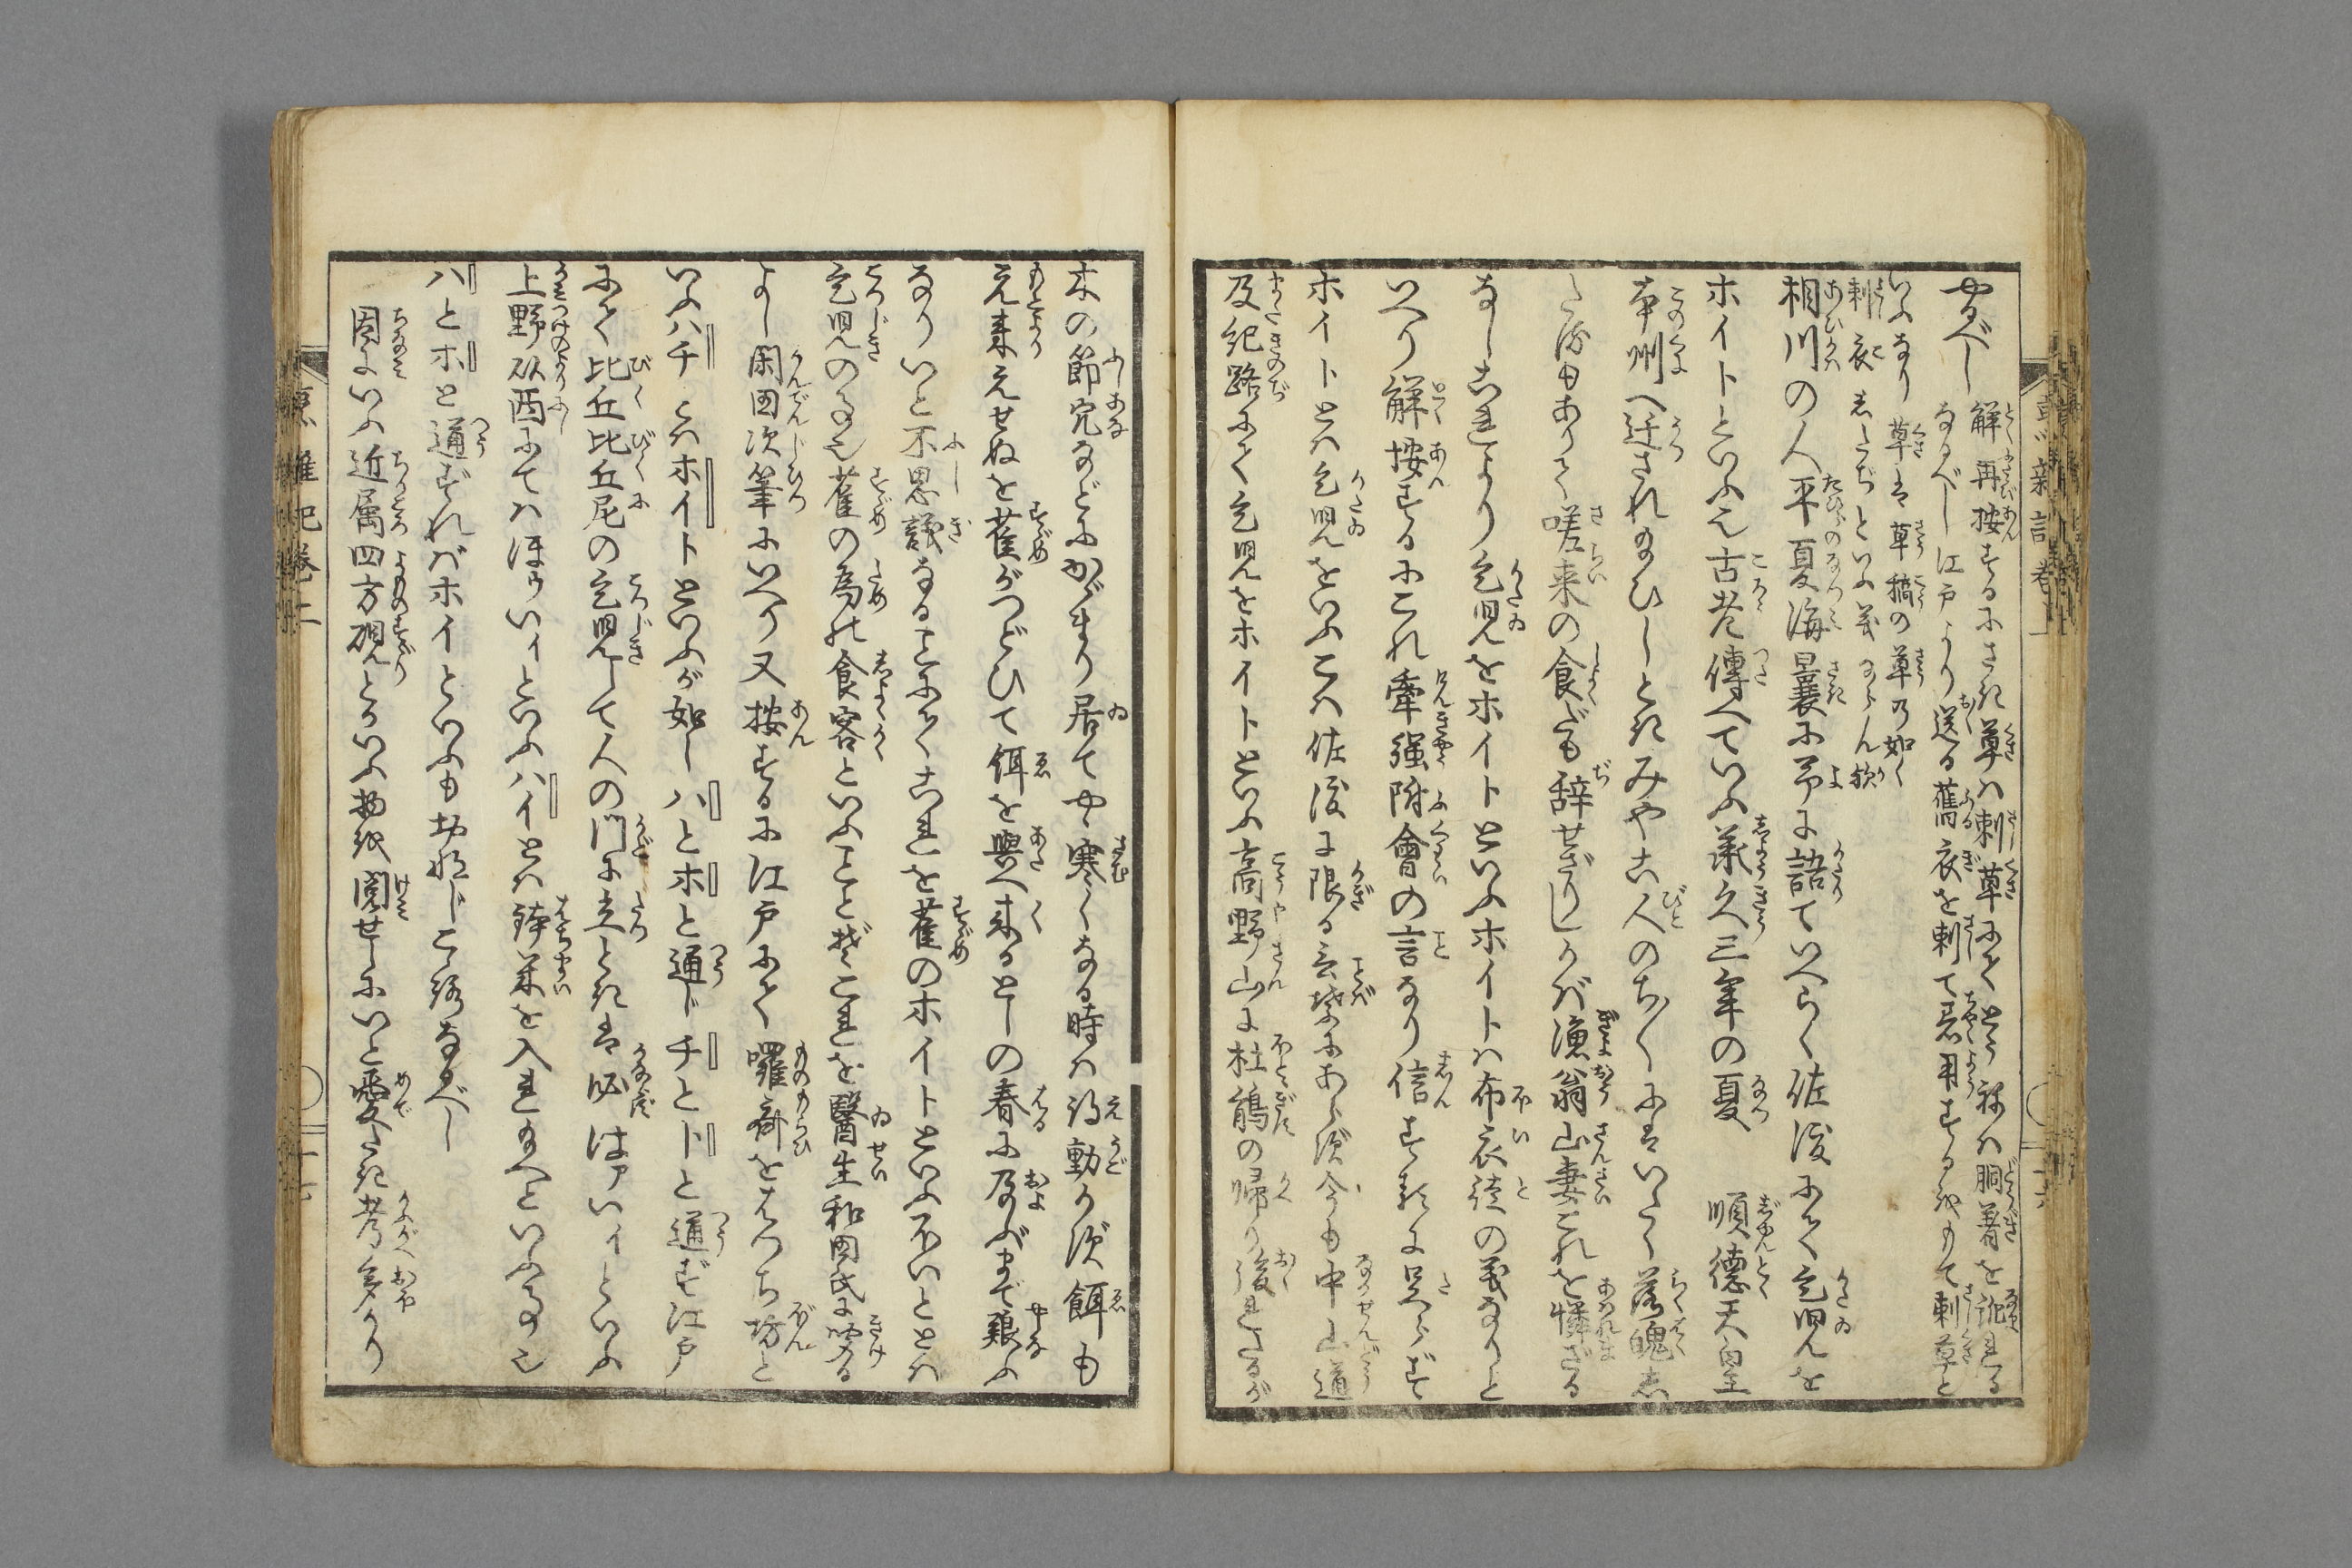 やるべし
解再按ずるにさき草ハ刺草にてとう祢ハ胴着を訛れる
なるべし江戸より送る舊衣を刺て著用するゆゑもて刺草と
いふなり草は草稿の草の如く
刺衣したぢといふ義ならん歟
相川の人平夏海曩に予に語ていへらく佐渡にて乞児を
ホイトといふは古老傳へていふ承久三年の夏　順德天皇
本州へ迁されたまひしときみやこ人のちりちりにはいたく落魄し
たるもありて嗟来の食だも辞せざりしかバ漁翁山妻これを憐ざる
なしこれより乞児をホイトといふホイトハ布衣徒の義なりと
いへり解按ずるにこれ牽强附會の言なり信ずるに足らず
ホイトとハ乞児をいふこハ佐渡に限る言葉にあらず今も中山道
及紀路にて乞児をホイトといふ高野山に杜鵑の歸り後れたるが
木の節穴などにかゞまり居てやゝ寒くなる時ハ得動かず餌も
え来えせぬを雀がつどひて餌を與へ来るとしの春に及ぶまで親ふ
なりいと不思議なることにてこれを雀のホイトといふホいととハ
乞児の事也雀の為に食客といふことぞこれを醫生和田氏に聞る
よし閑田次筆にいへり又按ずるに江戸にて囉齋をはつち坊と
いふハチとハホイトといふが如しハとホと通じチとトと通ず江戸
にて比丘比丘尼の乞児して人の門に立ときは必はァいィといふ
上野以西にてハほゥいィといふハイとハ鉢米を入れたまへといふ事也
ハとホと通ずれバホイといふもおなじこゝろなるべし
因にいふ近属四方硯とかいふ物を閲せしにいと愛たき考多かり